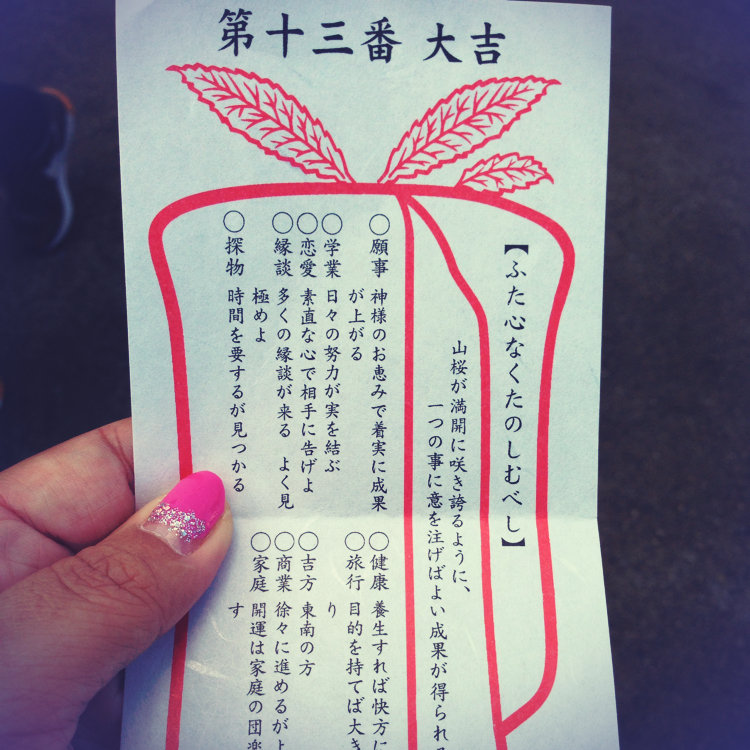 第十三番 大吉
【ふた心なくたのしむべし】
山桜が満開に咲き誇るように、
一つの事に意を注げばよい成果が得られる
○願事 神様のお恵みで着実に成果
が上がる
○学業 日々の努力が実を結ぶ
○恋愛 素直な心で相手に告げよ
○縁談 多くの縁談が来る よく見
極めよ
○探物 時間を要するが見つかる
○健康 養生すれば快方に
○旅行 目的を持てば大き
り
○吉方 東南の方
○商業 徐々に進めるがよ
○家庭 開運は家庭の団楽
す